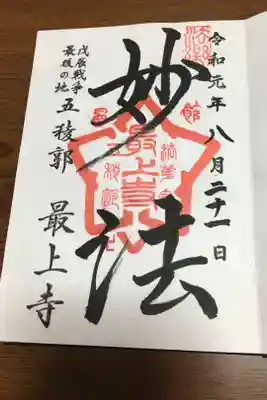 令和元年八月二十一日
妙法
戊辰戦争
最後の地
五稜郭 最上寺
最上寺